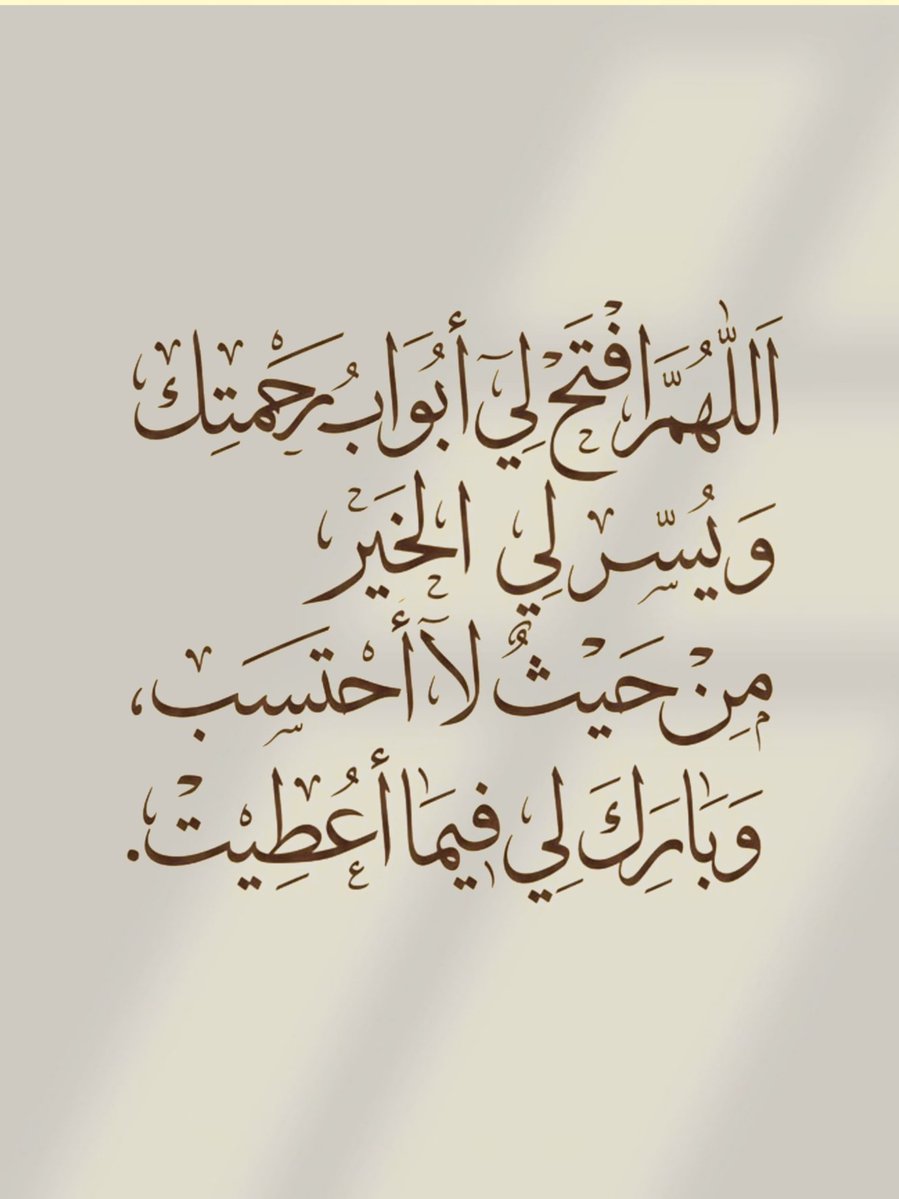 اَللّٰهُمَّ افْتَحْ لِيٓ أَبُوَابُ رَحْمتِك
وَيُسّر لِي الخَيْرْ
مِنْ حَيْثُ لآ أحْتسَب،
وَبَارِكَ لِي فيمَا أعُطِيتْ.